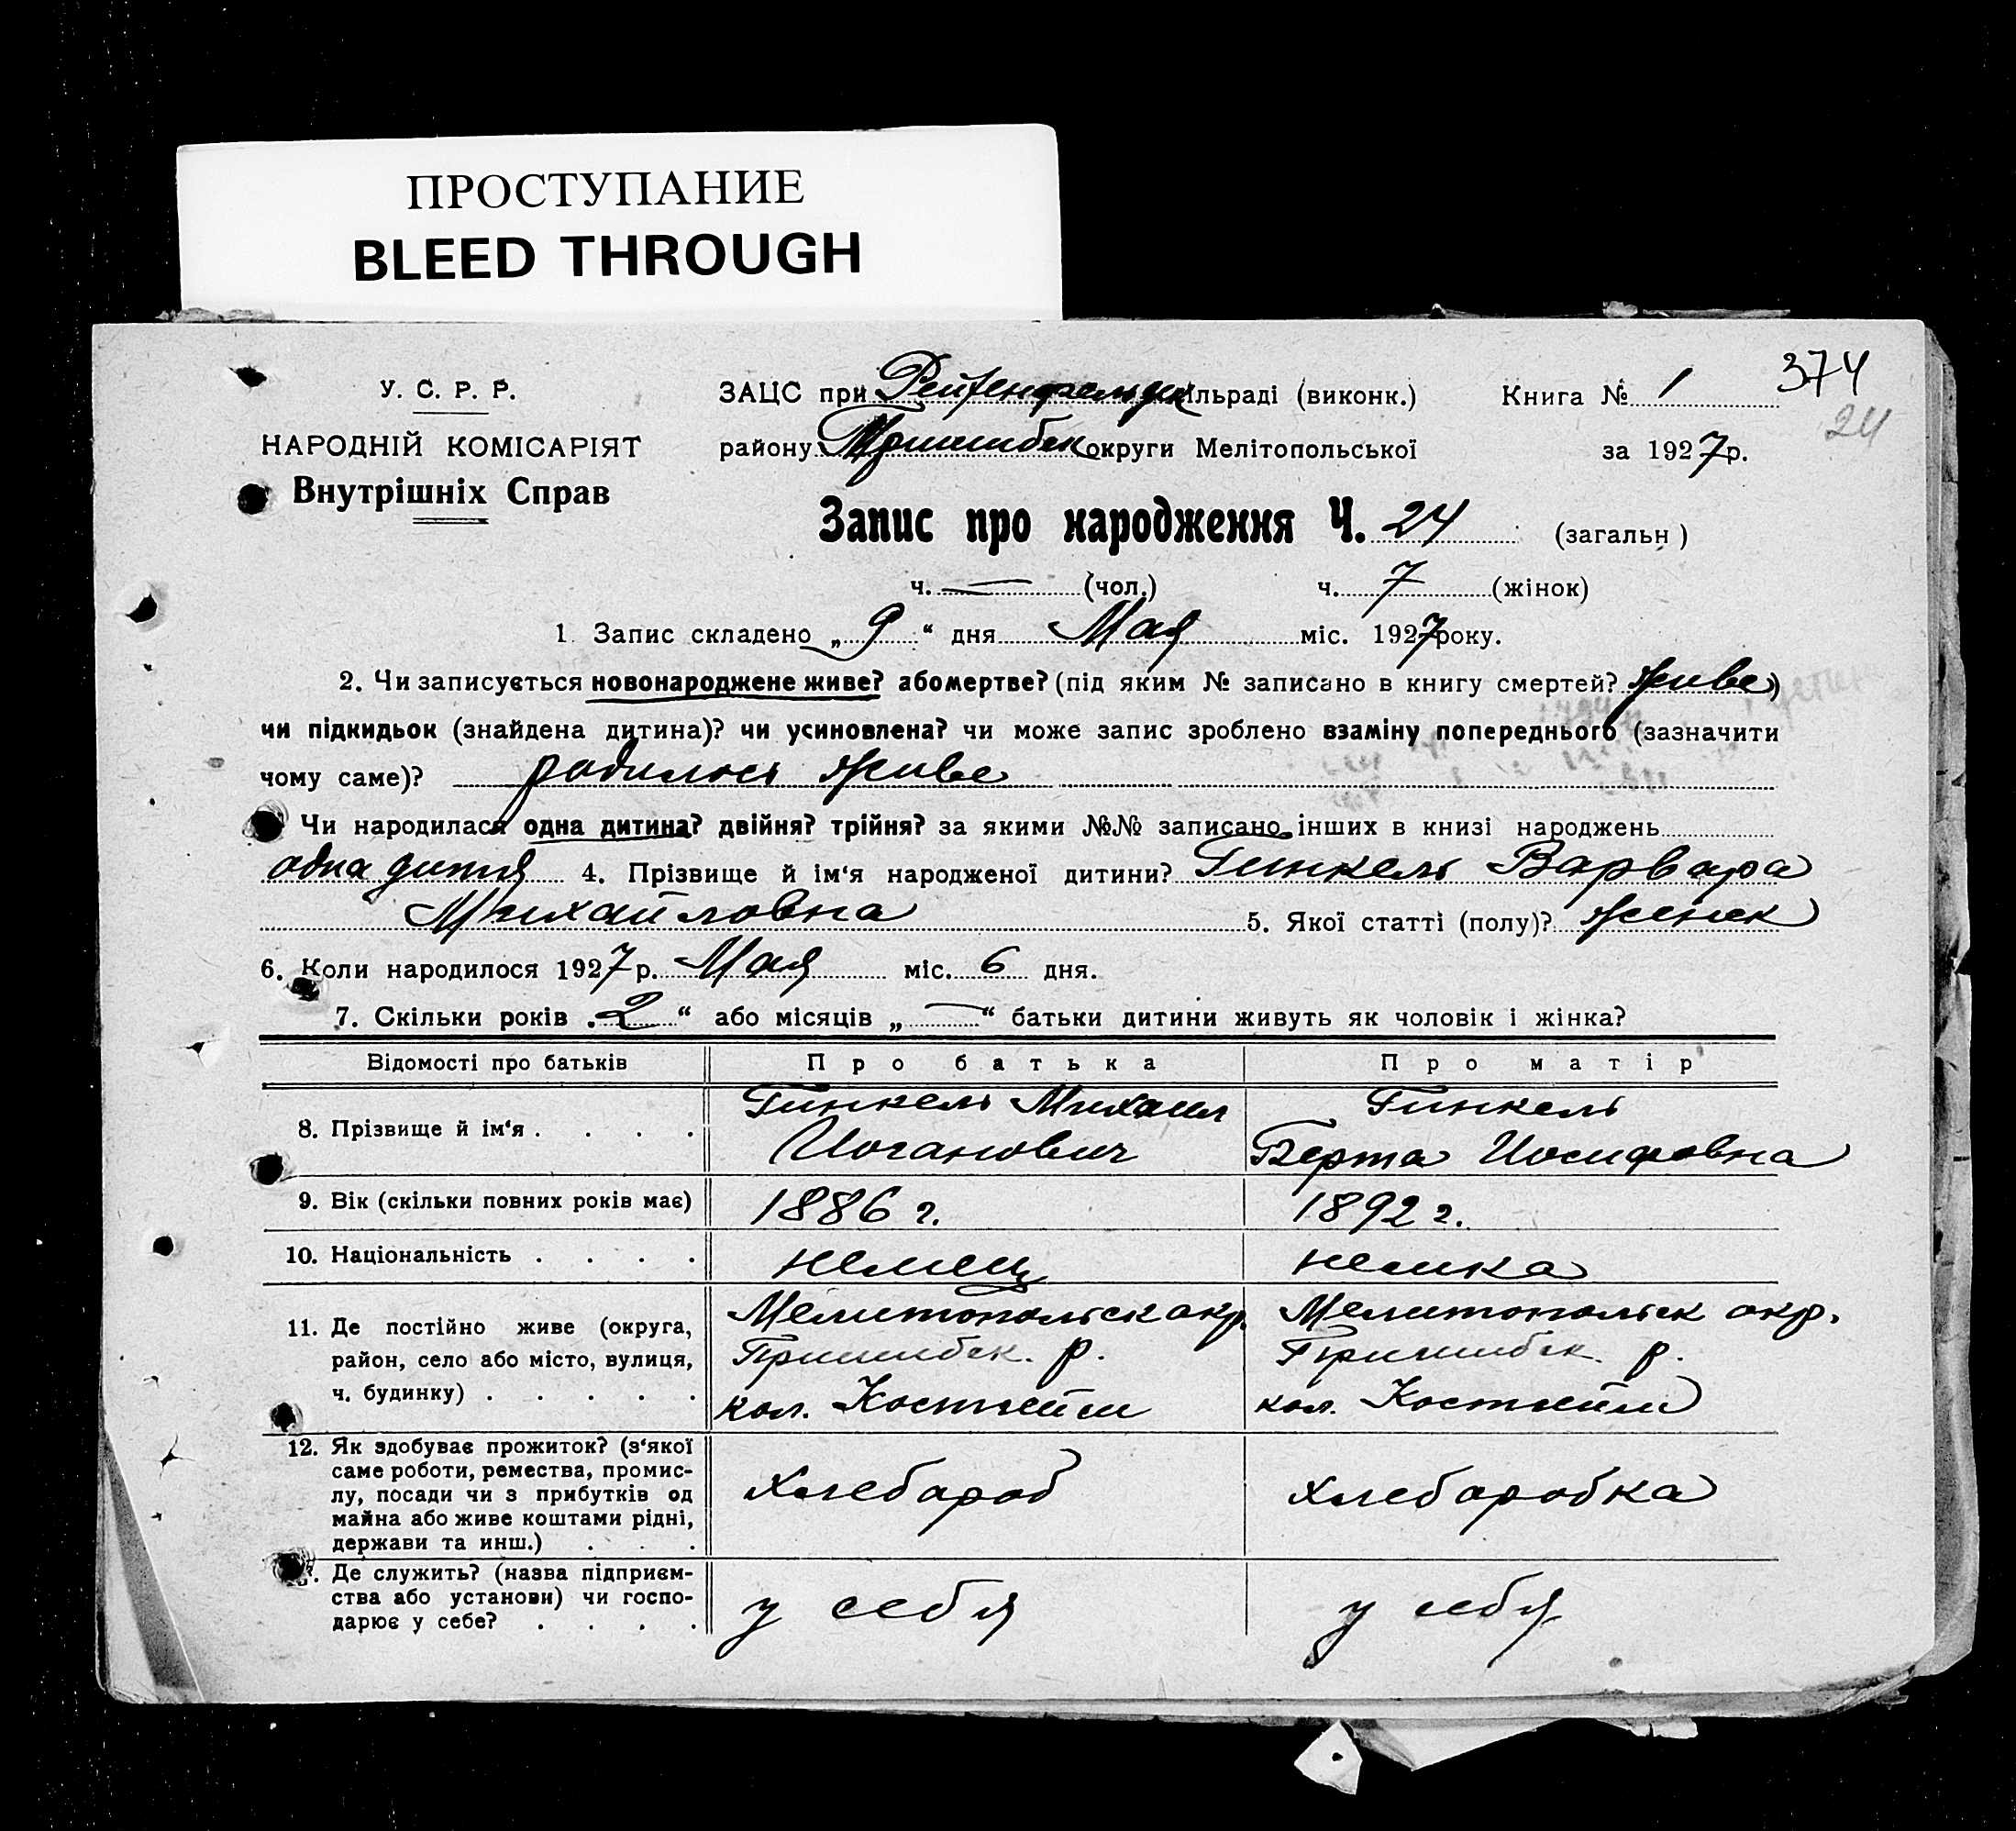 ПРОСТУПАНИЕ
BLEED THROUGH
374
24
У. С. Р. Р.
НАРОДНІЙ КОМІСАРІЯТ
Внутрішніх Справ
ЗАЦС при Рейхенфельдск ільраді (виконк.) Книга № 1
району Пришибск округи Мелітопольської за 1927 р.
Запис про народження Ч. 24 (загальн)
ч. — (чол.) ч. 7 (жінок)
1. Запис складено „ 9 “ дня Мая міс. 1927 року.
2. Чи записується новонароджене живе? або мертве? (під яким № записано в книгу смертей? живе)
чи підкидьок (знайдена дитина)? чи усиновлена? чи може запис зроблено взаміну попереднього (зазначити
чому саме)? родилось живе
Чи народилася одна дитина? двійня? трійня? за якими №№ записано інших в книзі народжень
одна дитя 4. Прізвище й ім‘я народженої дитини? Гинкель Варвара
Михайловна 5. Якої статті (полу)? женск
6. Коли народилося 1927 р. Мая міс. 6 дня.
7. Скільки років „ 2 “ або місяців „ — “ батьки дитини живуть як чоловік і жінка?
Відомості про батьків Про батька Про матір
8. Прізвище й ім‘я . . . . Гинкель Михаил Иоганович Гинкель Берта Иосифовна
9. Вік (скільки повних років має) 1886 г. 1892 г.
10. Національність . . . . немец немка
11. Де постійно живе (округа, Мелитопольск окр. Мелитопольск окр.
район, село або місто, вулиця, Пришибск. р. Пришибск. р.
ч. будинку) . . . . . кол. Костгейм кол. Костгейм
12. Як здобуває прожиток? (з‘якої
саме роботи, ремества, промис-
лу, посади чи з прибутків од хлебороб хлеборобка
майна або живе коштами рідні,
держави та инш.) . . .
Де служить? (назва підприєм-
ства або установи) чи госпо- у себя у себя
дарює у себе? . . . .